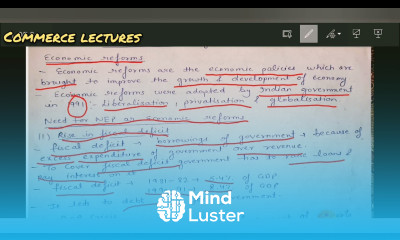 COMMERCE LECTURES
Economic reforms
- Economic reforms are the economic policies which are
brought to improve the growth & development of economy
- Economic reforms were adopted by Indian government
in 1991 - liberalisation, privatisation & globalisation.
Need for NEP or economic reforms
(1) Rise in fiscal deficit
- fiscal deficit → borrowings of government → because of
excess expenditure of government over revenue
- To cover fiscal deficit government has to raise loans &
pay interest on it
- fiscal deficit - 1981-82 → 5.4% of GDP
of GDP
- It led to debt
Mind
Luster